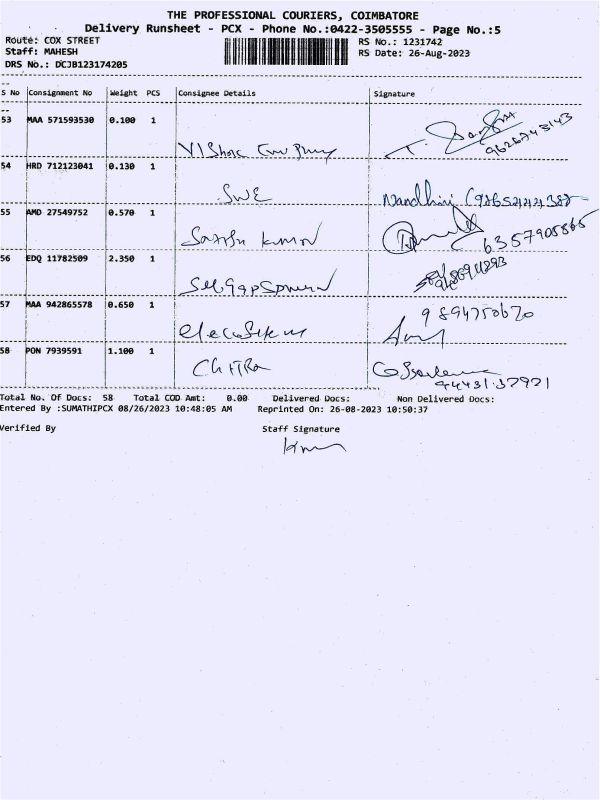 THE PROFESSIONAL COURIERS, COIMBATORE
Delivery Runsheet - PCX - Phone No.:0422-3505555 - Page No.:5
Route: COX STREET RS No.: 1231742
Staff: MAHESH RS Date: 26-Aug-2023
DRS No.: DCJB123174205
S No Consignment No Weight PCS Consignee Details Signature
53 MAA 571593530 0.100 1
54 HRD 712123041 0.130 1
SWE Nandhini
55 AMD 27549752 0.570 1
Kumar 6357905865
56 EDQ 11782509 2.350 1
57 MAA 942865578 0.650 1
9894750620
58 PON 7939591 1.100 1
CHITRA
94431 37921
Total No. Of Docs: 58 Total COD Amt: 0.00 Delivered Docs: Non Delivered Docs:
Entered By :SUMATHIPCX 08/26/2023 10:48:05 AM Reprinted On: 26-08-2023 10:50:37
Verified By Staff Signature